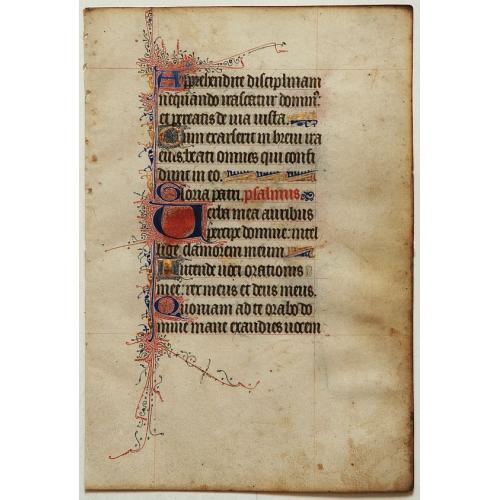 Apprehendite disciplinam
nequando irascatur domin9
et pereatis de via iusta.
Cum exarserit in brevi ira
eius: beati omnes qui confi
dunt in eo.
Gloria patri. psalmus
Verba mea auribus
percipe domine: intel
lige clamorem meum
Intende voci orationis
mee: rex meus et deus meus.
Quoniam ad te orabo do
mine mane exaudies vocem